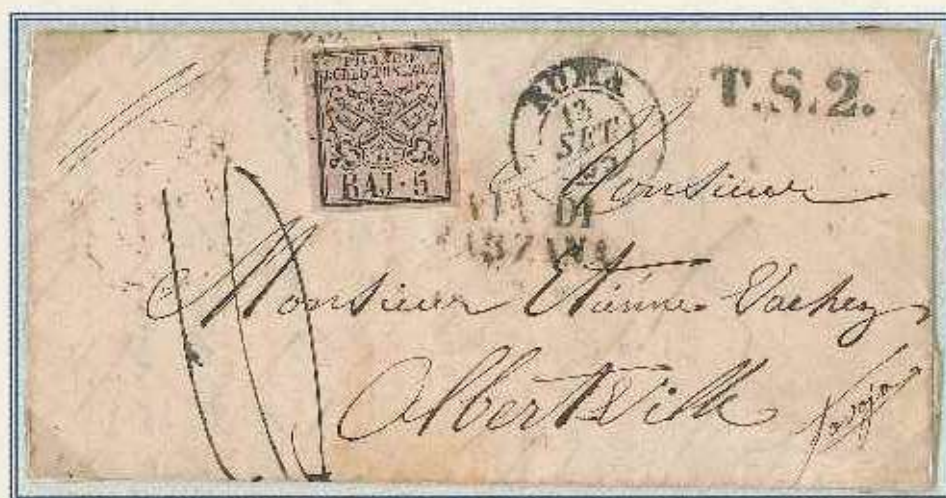 FRANCO
BOLLO POSTALE
BAJ·5
ROMA
13
SET
T.S.2.
VIA DI
SARZANA
Monsieur
Monsieur Etienne Vachez
Albertville
Savoja